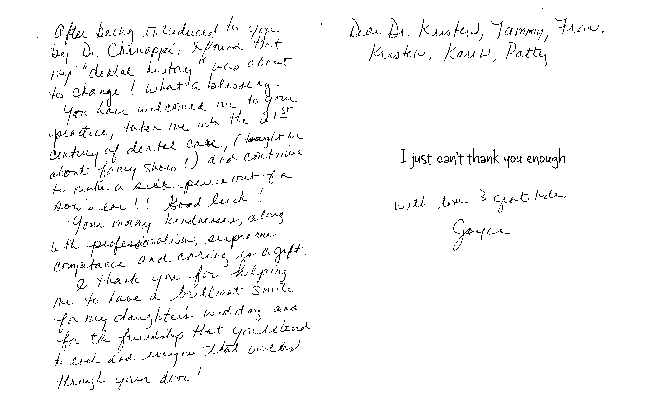 After being introduced to you
by Dr. Chinappi, I found that
my "dental history" was about
to change! What a blessing.
You have welcomed me to your
practice, taken me into the 21st
century of dental care, (
about funny shows!) and continue
to make a silk purse out of a
sow's ear!! Good luck!
Your many kindnesses, along
with professionalism, supreme
competence and caring is a gift.
I thank you for helping
me to have a brilliant smile
for my daughter's wedding and
for the friendship that you extend
to each and everyone that
through your door!
Dear Dr. Kristen, Tammy, Fran,
Kristen, Karin, Patty
I just can't thank you enough
with love & gratitude
Joyce